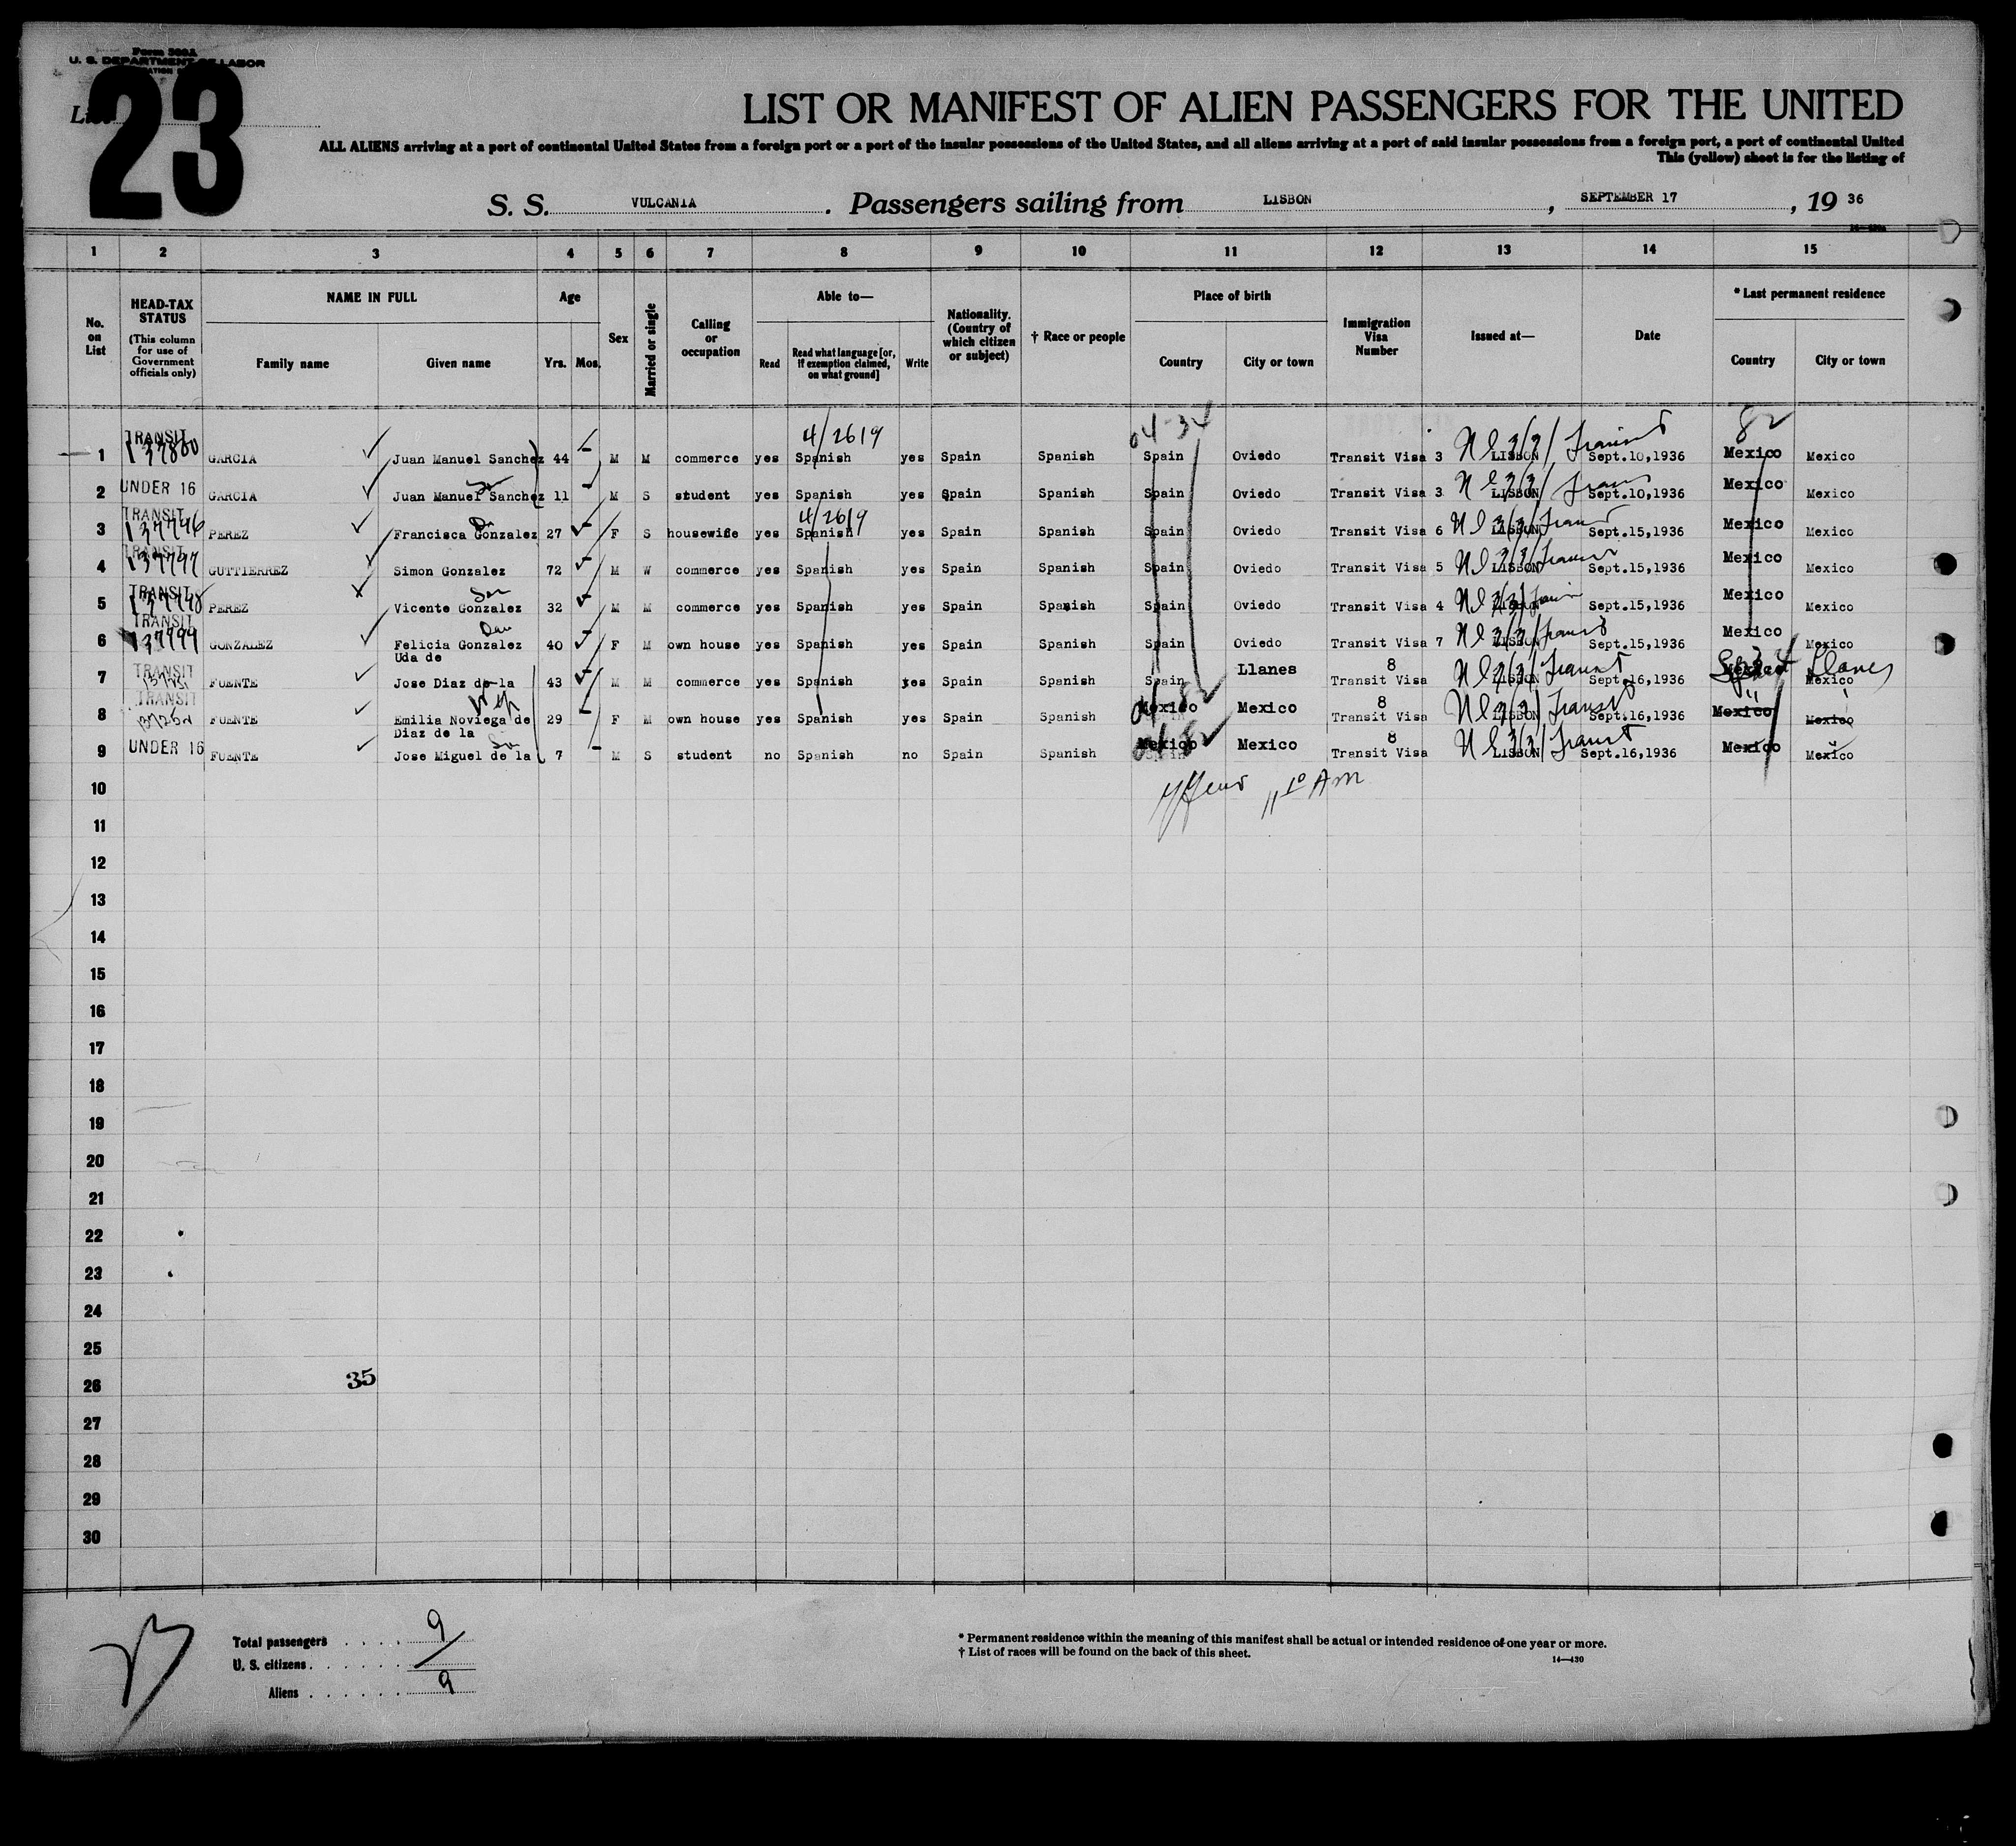 Form 500A
U. S. DEPARTMENT OF LABOR
List 23
LIST OR MANIFEST OF ALIEN PASSENGERS FOR THE UNITED
ALL ALIENS arriving at a port of continental United States from a foreign port or a port of the insular possessions of the United States, and all aliens arriving at a port of said insular possessions from a foreign port, a port of continental United
This (yellow) sheet is for the listing of
S. S. VULCANIA. Passengers sailing from LISBON, SEPTEMBER 17, 19 36
1 2 3 4 5 6 7 8 9 10 11 12 13 14 15
No. on List
HEAD-TAX STATUS (This column for use of Government officials only)
NAME IN FULL Family name Given name
Age Yrs. Mos.
Sex
Married or single
Calling or occupation
Able to— Read Read what language [or, if exemption claimed, on what ground] Write
Nationality. (Country of which citizen or subject)
† Race or people
Place of birth Country City or town
Immigration Visa Number
Issued at—
Date
* Last permanent residence Country City or town
4/2619 04-34 82
1 TRANSIT 137800 GARCIA Juan Manuel Sanchez 44 M M commerce yes Spanish yes Spain Spanish Spain Oviedo Transit Visa 3 LISBON Transit Sept.10,1936 Mexico Mexico
2 UNDER 16 GARCIA Juan Manuel Sanchez Son 11 M S student yes Spanish yes Spain Spanish Spain Oviedo Transit Visa 3 LISBON Sept.10,1936 Mexico Mexico
4/2619
3 TRANSIT 137796 PEREZ Francisca Gonzalez 27 F S housewife yes Spanish yes Spain Spanish Spain Oviedo Transit Visa 6 LISBON Transit Sept.15,1936 Mexico Mexico
4 TRANSIT 137797 GUTTIERREZ Simon Gonzalez 72 M W commerce yes Spanish yes Spain Spanish Spain Oviedo Transit Visa 5 LISBON Transit Sept.15,1936 Mexico Mexico
5 TRANSIT 137798 PEREZ Vicente Gonzalez Son 32 M M commerce yes Spanish yes Spain Spanish Spain Oviedo Transit Visa 4 Sept.15,1936 Mexico Mexico
6 TRANSIT 137799 GONZALEZ Felicia Gonzalez Dau 40 F M own house yes Spanish yes Spain Spanish Spain Oviedo Transit Visa 7 LISBON Transit Sept.15,1936 Mexico Mexico
Uda de
7 TRANSIT FUENTE Jose Diaz de la 43 M M commerce yes Spanish yes Spain Spanish Spain Llanes Transit Visa 8 LISBON Transit Sept.16,1936 Mexico Mexico Llanes
8 TRANSIT FUENTE Emilia Noviega de Wife 29 F M own house yes Spanish yes Spain Spanish Mexico Mexico Transit Visa 8 LISBON Transit Sept.16,1936 Mexico Mexico
Diaz de la
9 UNDER 16 FUENTE Jose Miguel de la Son 7 M S student no Spanish no Spain Spanish Mexico Mexico Transit Visa 8 LISBON Transit Sept.16,1936 Mexico Mexico
10
11
12
13
14
15
16
17
18
19
20
21
22
23
24
25
26 35
27
28
29
30
Total passengers 9
U. S. citizens
Aliens 9
* Permanent residence within the meaning of this manifest shall be actual or intended residence of one year or more.
† List of races will be found on the back of this sheet.
14—430